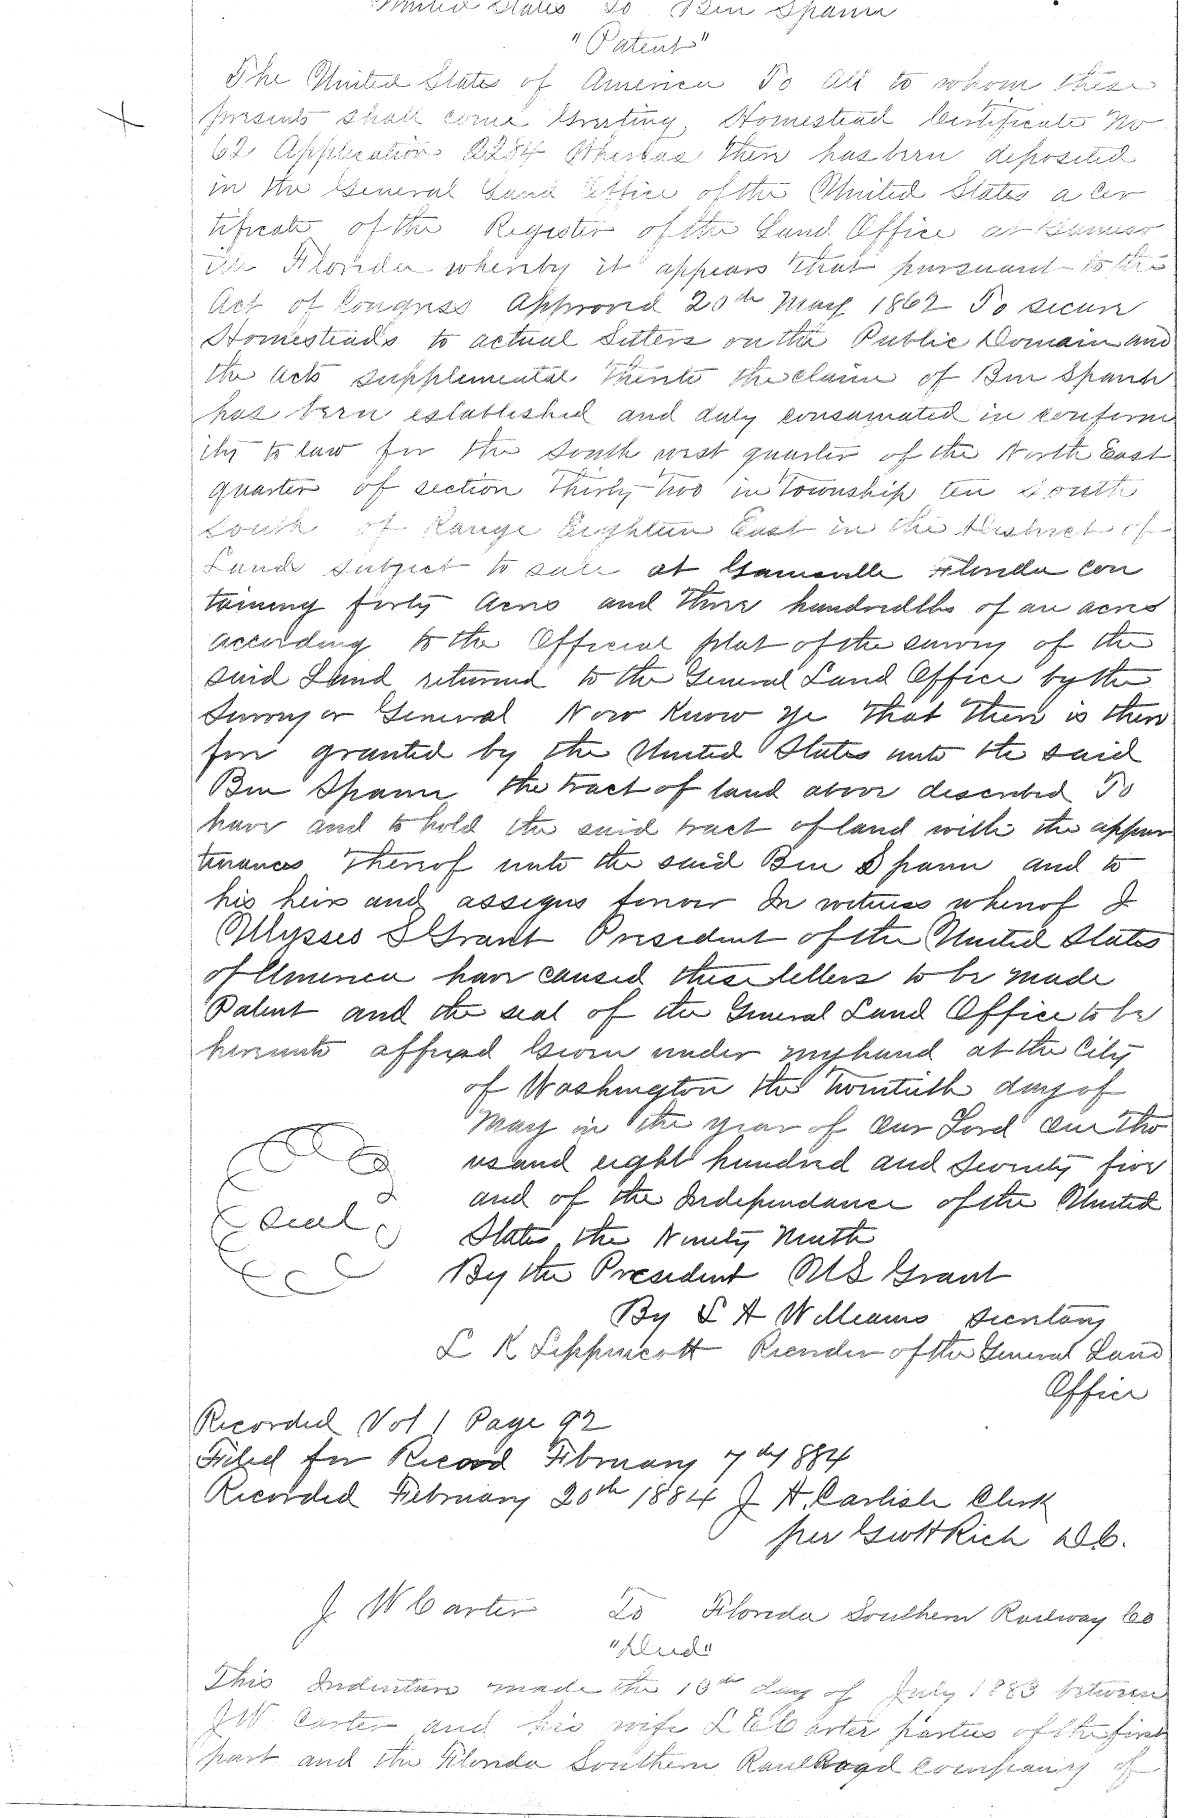 United States To Ben Spann
"Patent"
The United States of America To All to whom these
presents shall come Greeting Homestead Certificate No
62 Application 2284 Whereas there has been deposited
in the General Land Office of the United States a Cer
tificate of the Register of the Land Office at Gainesv
ille Florida whereby it appears that pursuant to the
Act of Congress approved 20th May 1862 To secure
Homesteads to actual Settlers on the Public Domain and
the acts supplemental thereto the claim of Ben Spann
has been established and duly consumated in conform
ity to law for the South west quarter of the North East
quarter of section Thirty Two in Township ten South
South of Range Eighteen East in the District of
Lands subject to sale at Gainesville Florida con
taining forty acres and three hundredths of an acres
according to the Official plat of the survey of the
said Land returned to the General Land Office by the
Surveyor General Now Know Ye that There is there
fore granted by the United States unto the said
Ben Spann the tract of land above described To
have and to hold the said tract of land with the appur
tenances thereof unto the said Ben Spann and to
his heirs and assigns forever In witness whereof I
Ulysses S Grant President of the United States
of America have caused these letters to be made
Patent and the seal of the General Land Office to be
hereunto affixed Given under my hand at the City
of Washington the Twentieth day of
May in the year of Our Lord One Tho
usand eight hundred and seventy five
and of the Independance of the United
seal
States the Ninety Ninth
By the President U S Grant
By S A Williams Secretary
L K Lippincott Recorder of the General Land
Office
Recorded Vol 1 Page 92
Filed for Record February 7 dy 1884
Recorded February 20th 1884 J A. Carlisle Clerk
per Geo H Rich D.C.
J W Carter To Florida Southern Railway Co
"Deed"
This Indenture made the 10th day of July 1883 between
J W Carter and his wife L E Carter parties of the first
part and the Florida Southern Railroad company of